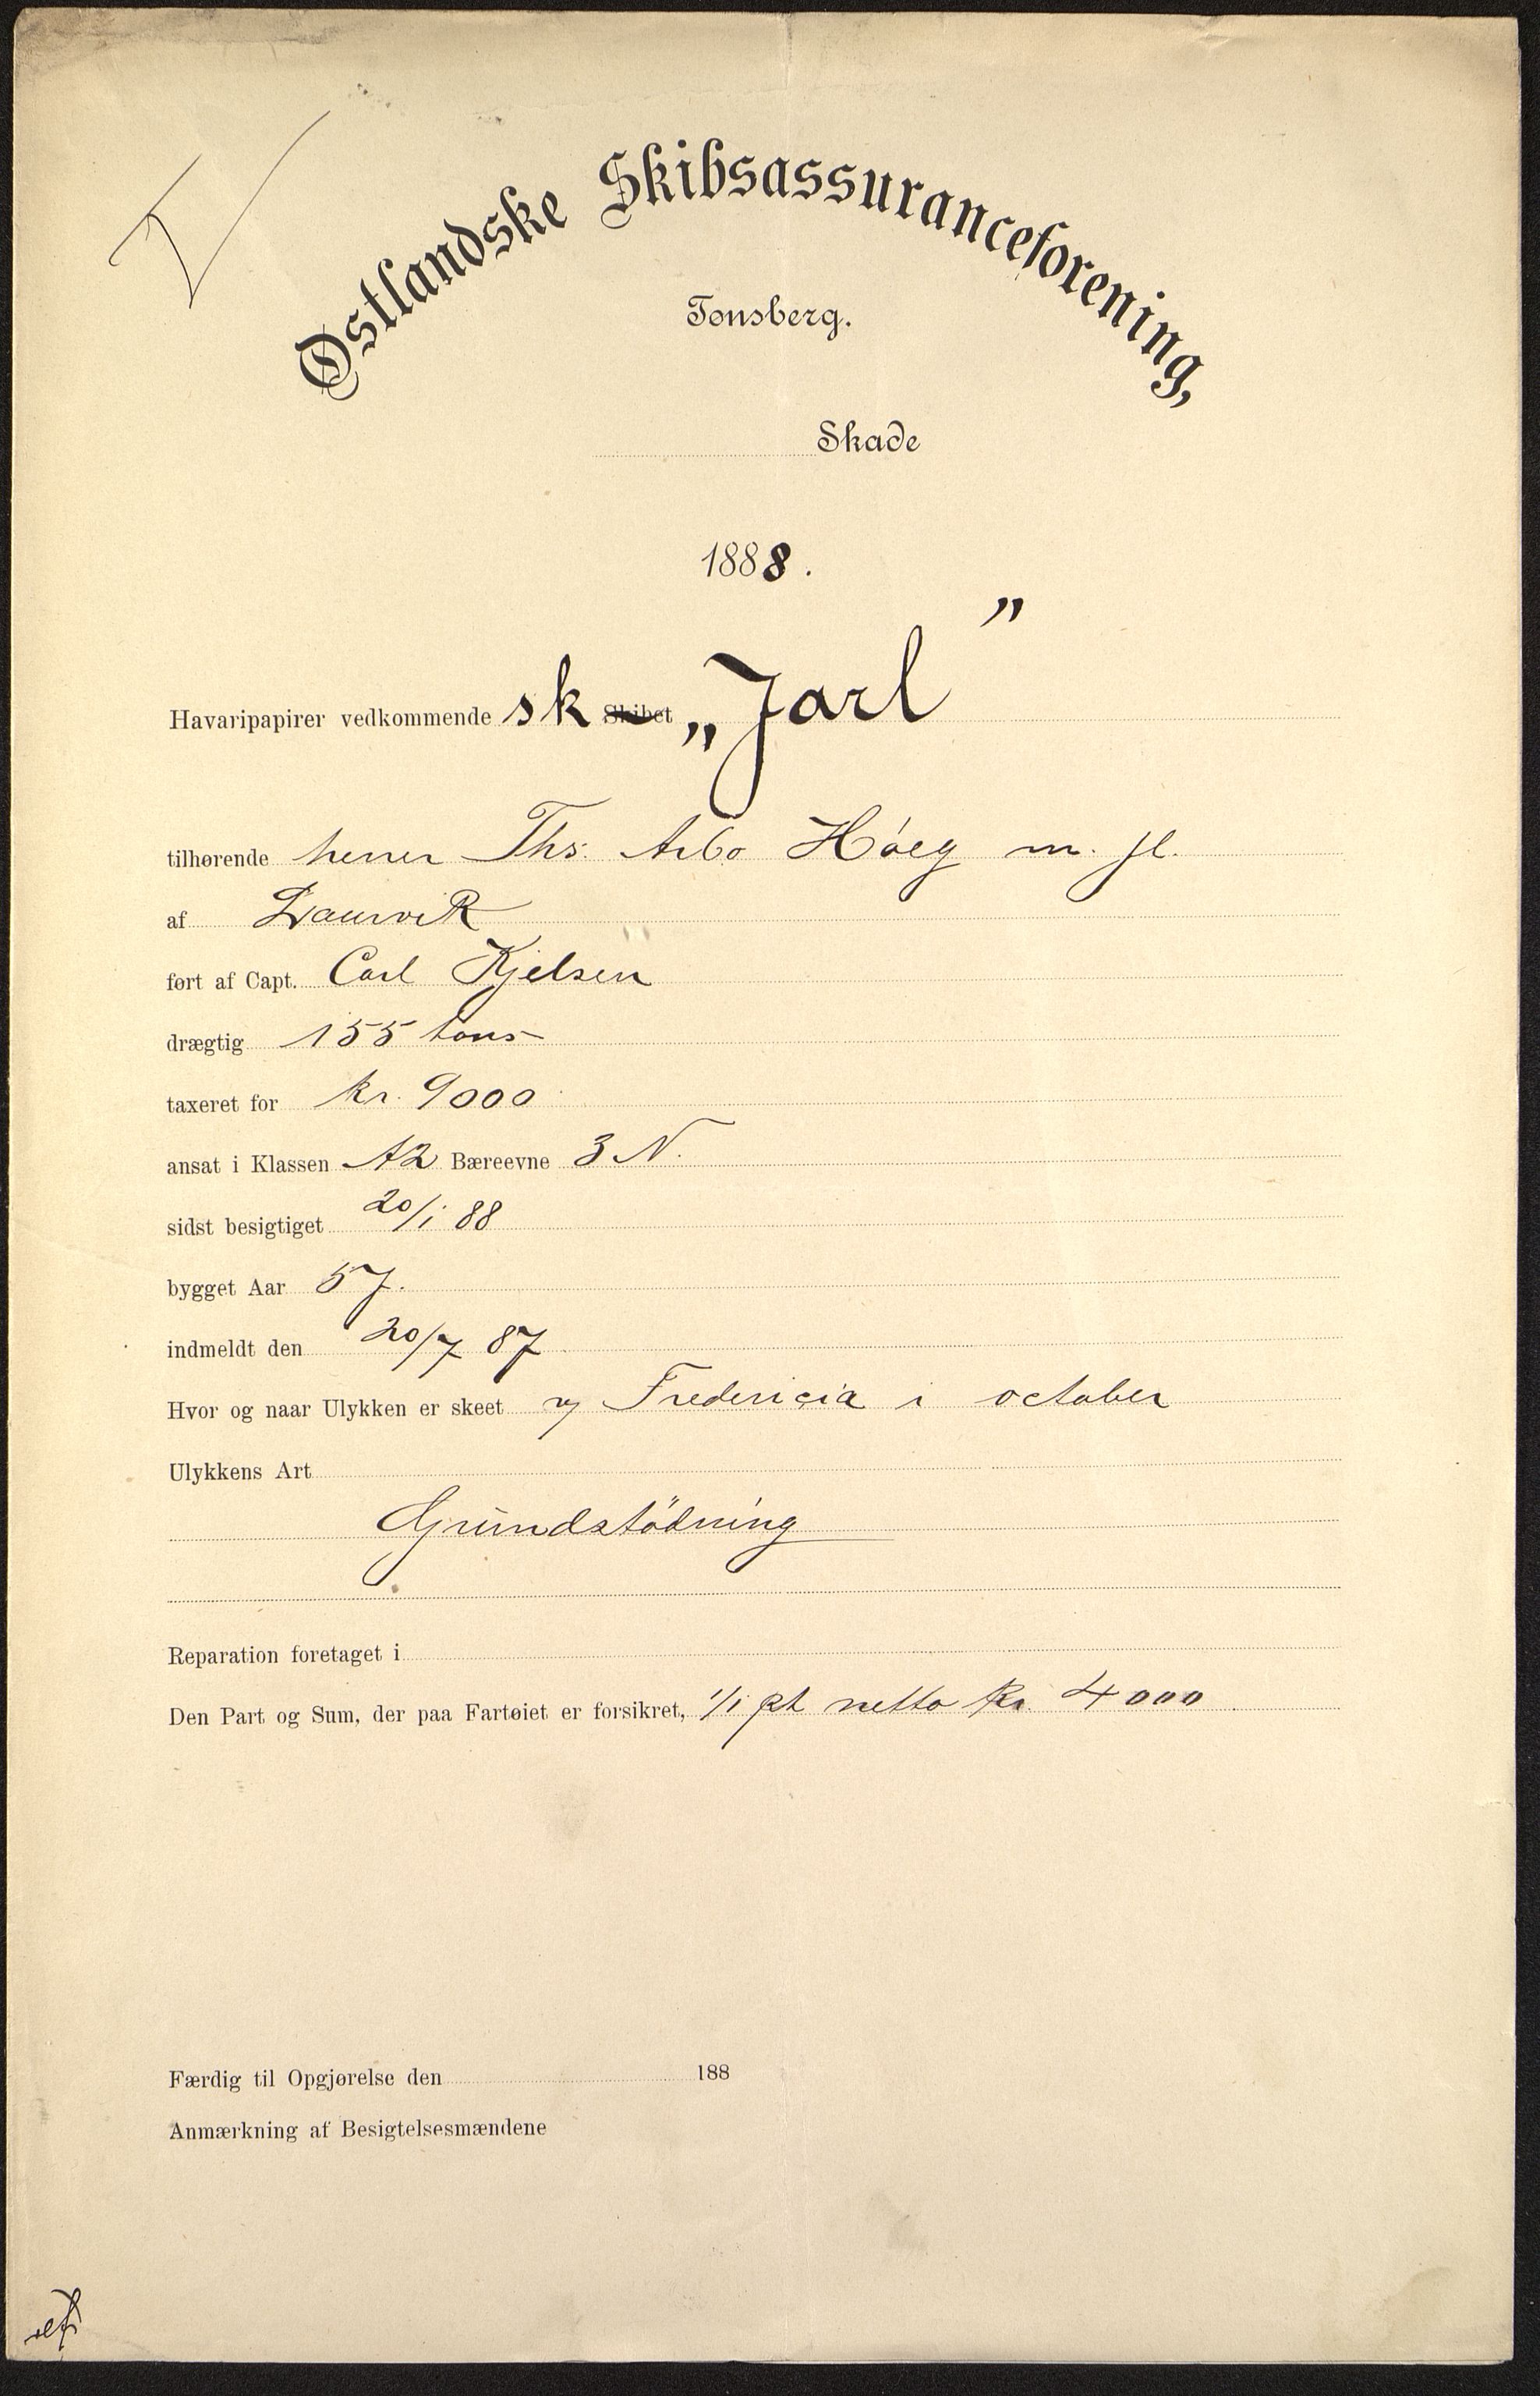 Østlandske Skibsassuranceforening,
Tønsberg.
Skade
1888.
Havaripapirer vedkommende sk Skibet „Jarl”
tilhørende herrer Ths. Arbo Høeg m. fl.
af Laurvik
ført af Capt. Carl Kjelsen
drægtig 155 tons
taxeret for kr. 9000
ansat i Klassen A2 Bæreevne 3 N.
sidst besigtiget 20/1 88
bygget Aar 57.
indmeldt den 20/7 87
Hvor og naar Ulykken er skeet v/ Fredericia i october
Ulykkens Art
Grundstödning
Reparation foretaget i
Den Part og Sum, der paa Fartøiet er forsikret, 1/1 pt netto kr. 4000
Færdig til Opgjørelse den 188
Anmærkning af Besigtelsesmændene